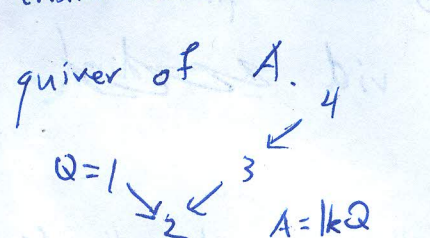 quiver of A.
4
Q = 1 3
2 A = kQ